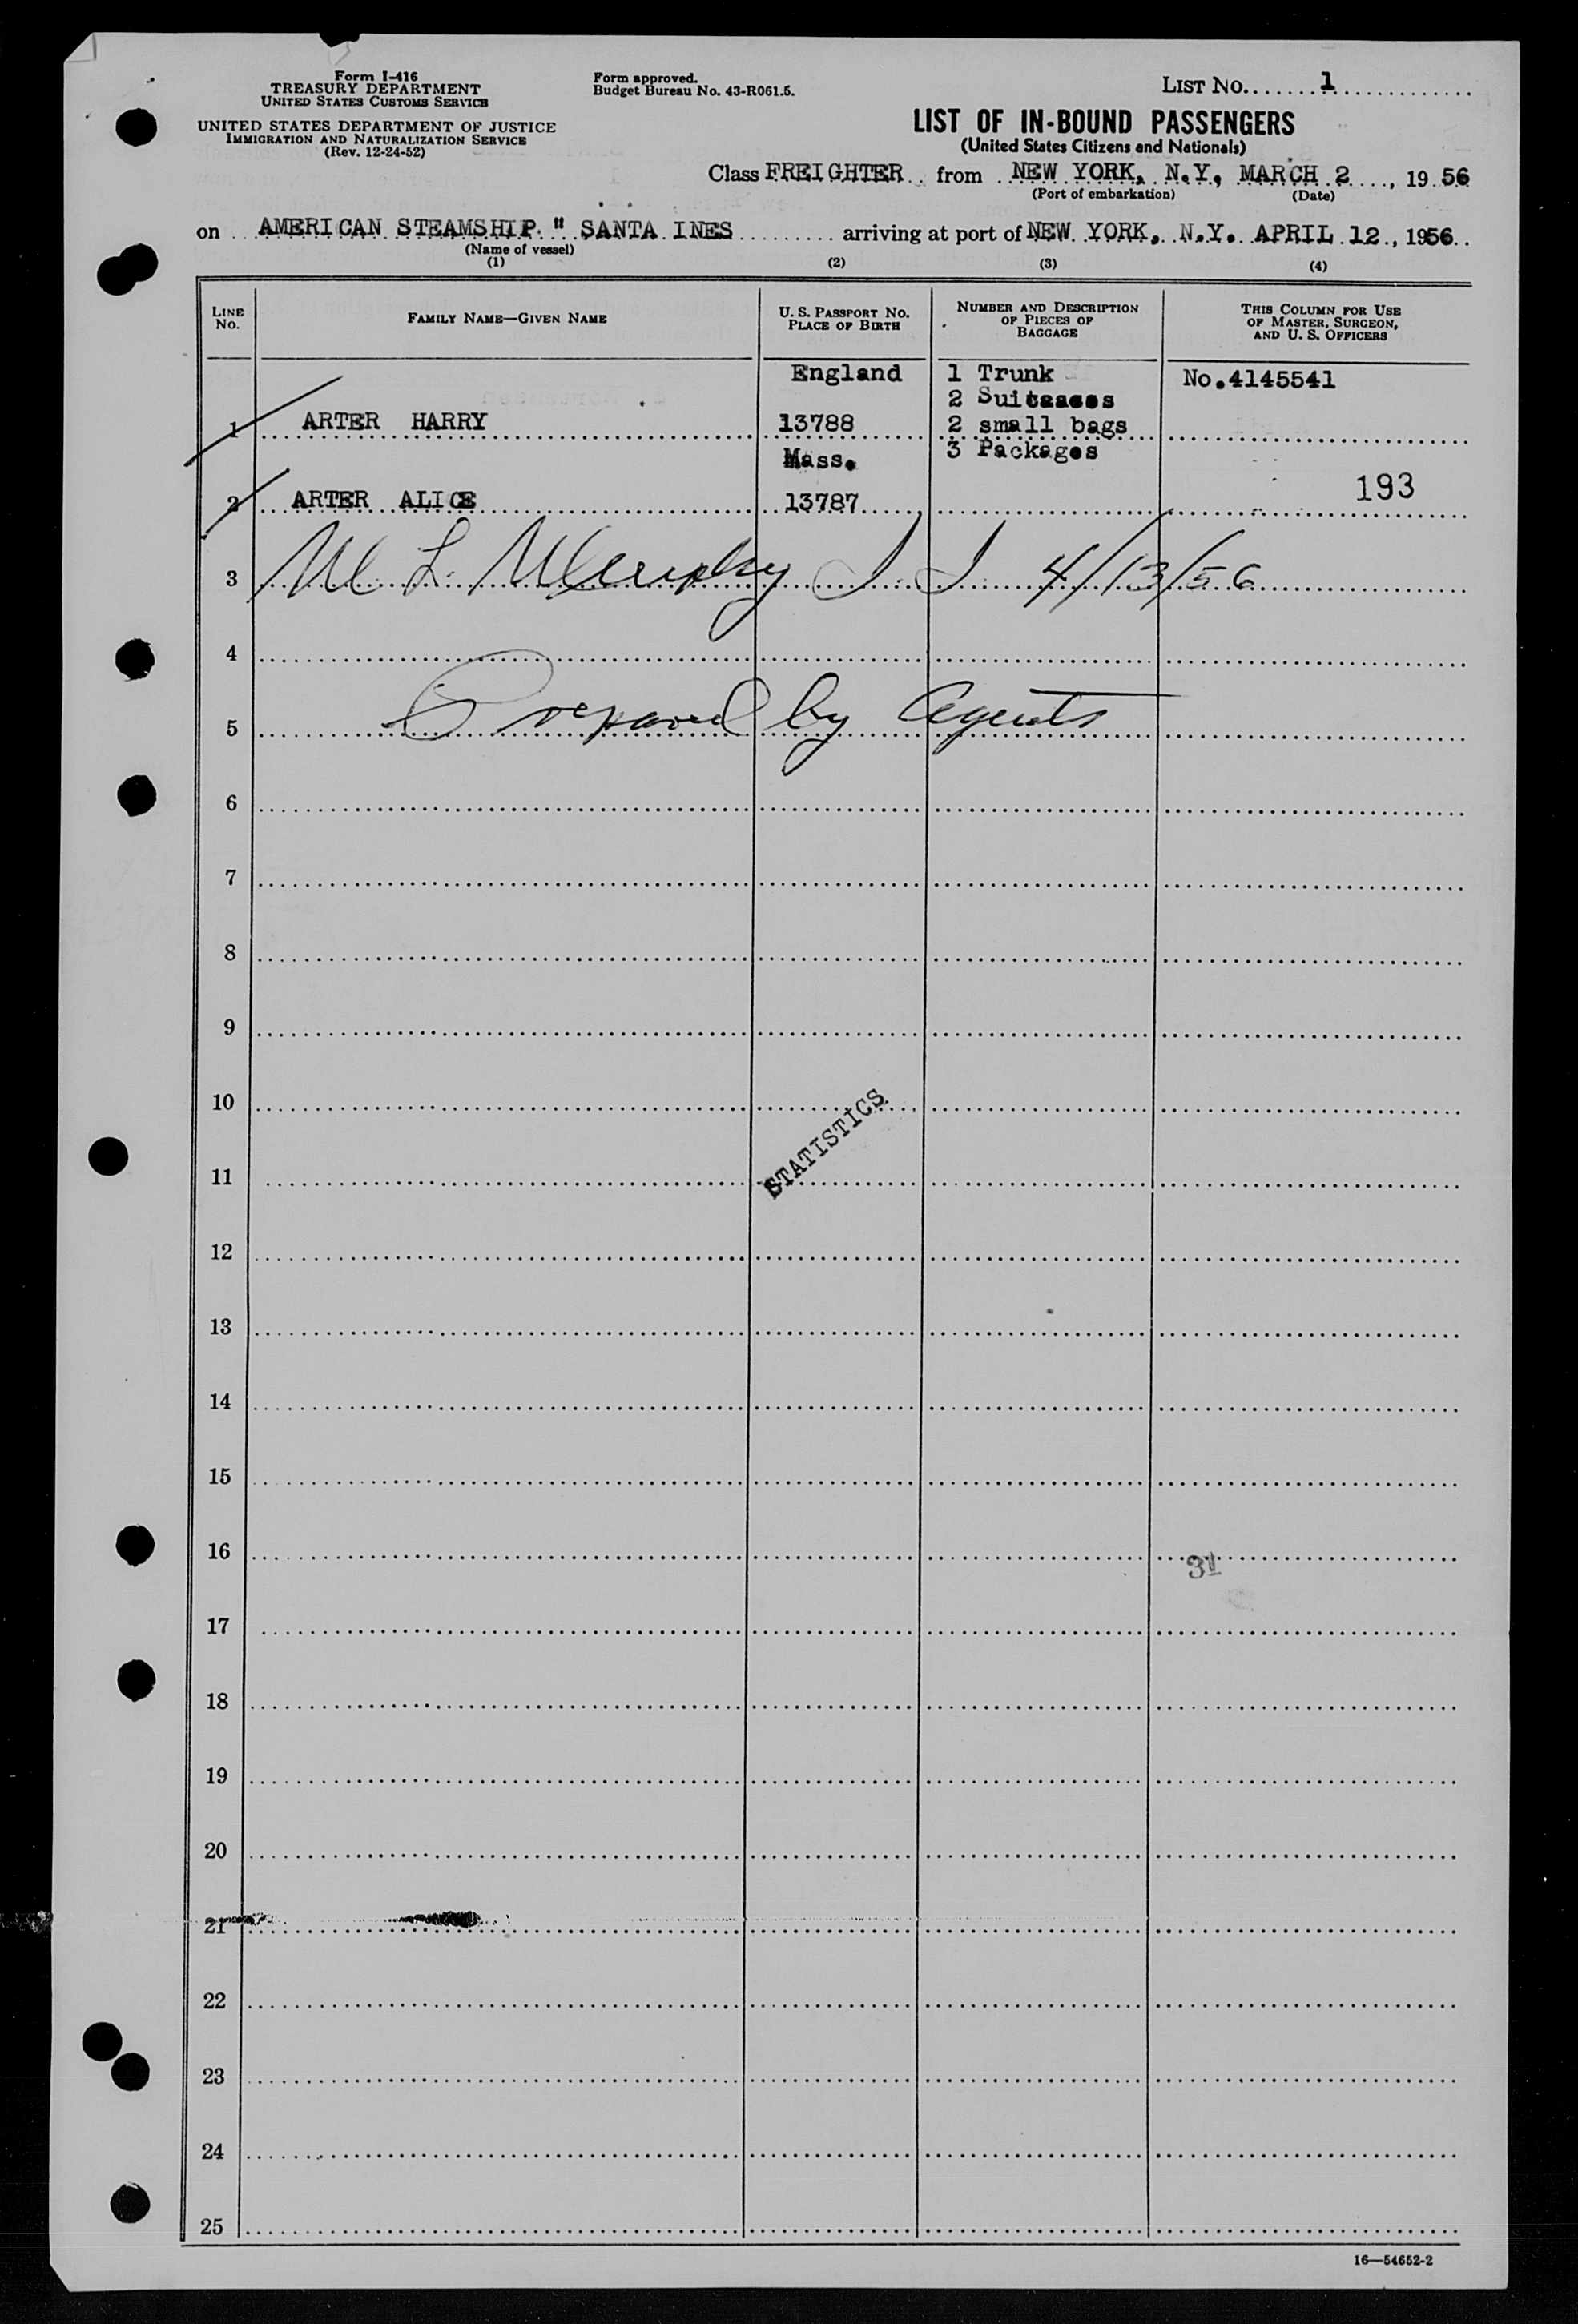 Form I-416
TREASURY DEPARTMENT
UNITED STATES CUSTOMS SERVICE
UNITED STATES DEPARTMENT OF JUSTICE
IMMIGRATION AND NATURALIZATION SERVICE
(Rev. 12-24-52)
Form approved.
Budget Bureau No. 43-R061.5.
LIST NO. 1
LIST OF IN-BOUND PASSENGERS
(United States Citizens and Nationals)
Class FREIGHTER from NEW YORK, N.Y., MARCH 2, 1956
(Port of embarkation) (Date)
on AMERICAN STEAMSHIP " SANTA INES arriving at port of NEW YORK, N.Y. APRIL 12, 1956
(Name of vessel)
(1) (2) (3) (4)
LINE NO.
FAMILY NAME—GIVEN NAME
U. S. PASSPORT NO.
PLACE OF BIRTH
NUMBER AND DESCRIPTION
OF PIECES OF
BAGGAGE
THIS COLUMN FOR USE
OF MASTER, SURGEON,
AND U. S. OFFICERS
England 1 Trunk No.4145541
2 Suitcases
1 ARTER HARRY 13788 2 small bags
Mass. 3 Packages
193
2 ARTER ALICE 13787
3 M L Murphy I. I. 4/13/56
4
5 Prepared by Agents
6
7
8
9
10
STATISTICS
11
12
13
14
15
16
31
17
18
19
20
21
22
23
24
25
16—54652-2